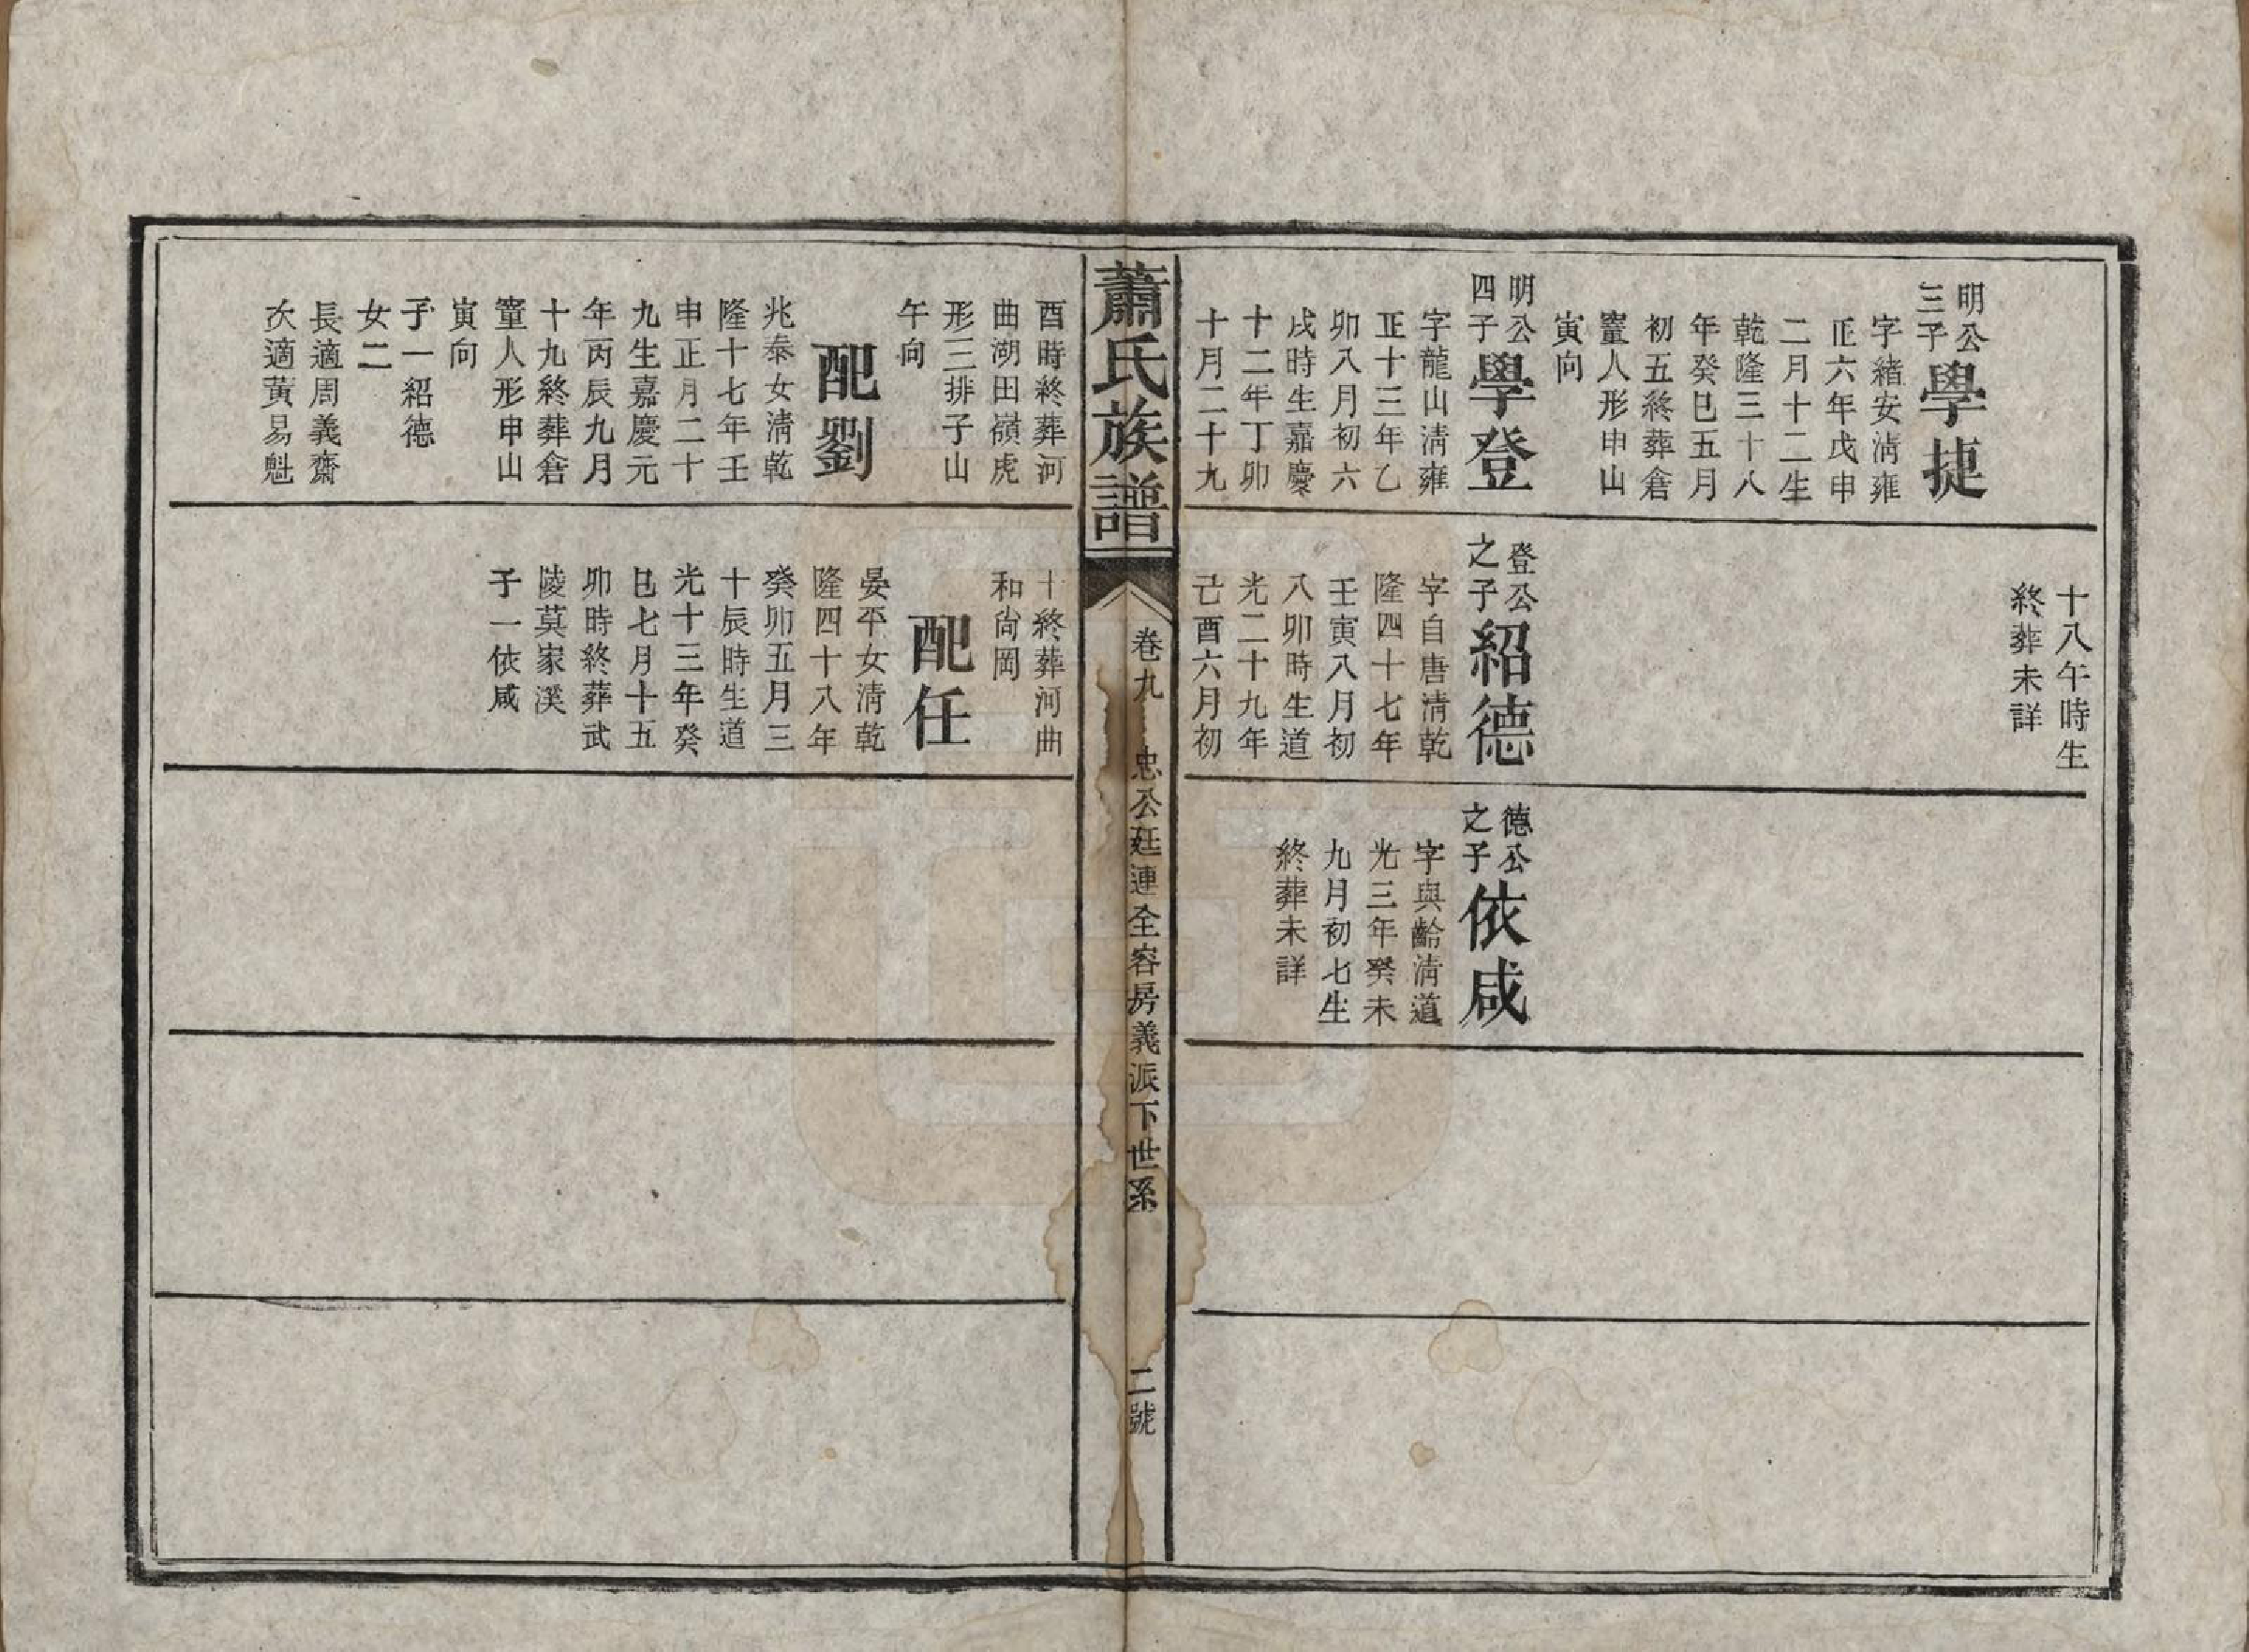 明公
三子
學捷
字緒安淸雍
正六年戊申
二月十二生
乾隆三十八
年癸巳五月
初五終葬倉
寅向
明公
四子
學登
字龍山淸雍
正十三年乙
卯八月初六
戌時生嘉慶
十二年丁卯
十月二十九
十八午時生
終葬未詳
登公
之子
紹德
字自唐淸乾
隆四十七年
壬寅八月初
八卯時生道
光二十九年
己酉六月初
德公
之子
依咸
字與齡淸道
光三年癸未
九月初七生
終葬未詳
蕭氏族譜
卷九
忠公廷連全容房義派下世系
二號
酉時終葬河
曲湖田嶺虎
形三排子山
午向
配劉
兆泰女淸乾
隆十七年壬
申正月二十
九生嘉慶元
年丙辰九月
十九終葬倉
寅向
子一紹德
女二
長適周義齋
次適黃易魁
十終葬河曲
和尙岡
配任
晏平女淸乾
隆四十八年
癸卯五月三
十辰時生道
光十三年癸
巳七月十五
卯時終葬武
陵莫家溪
子一依咸